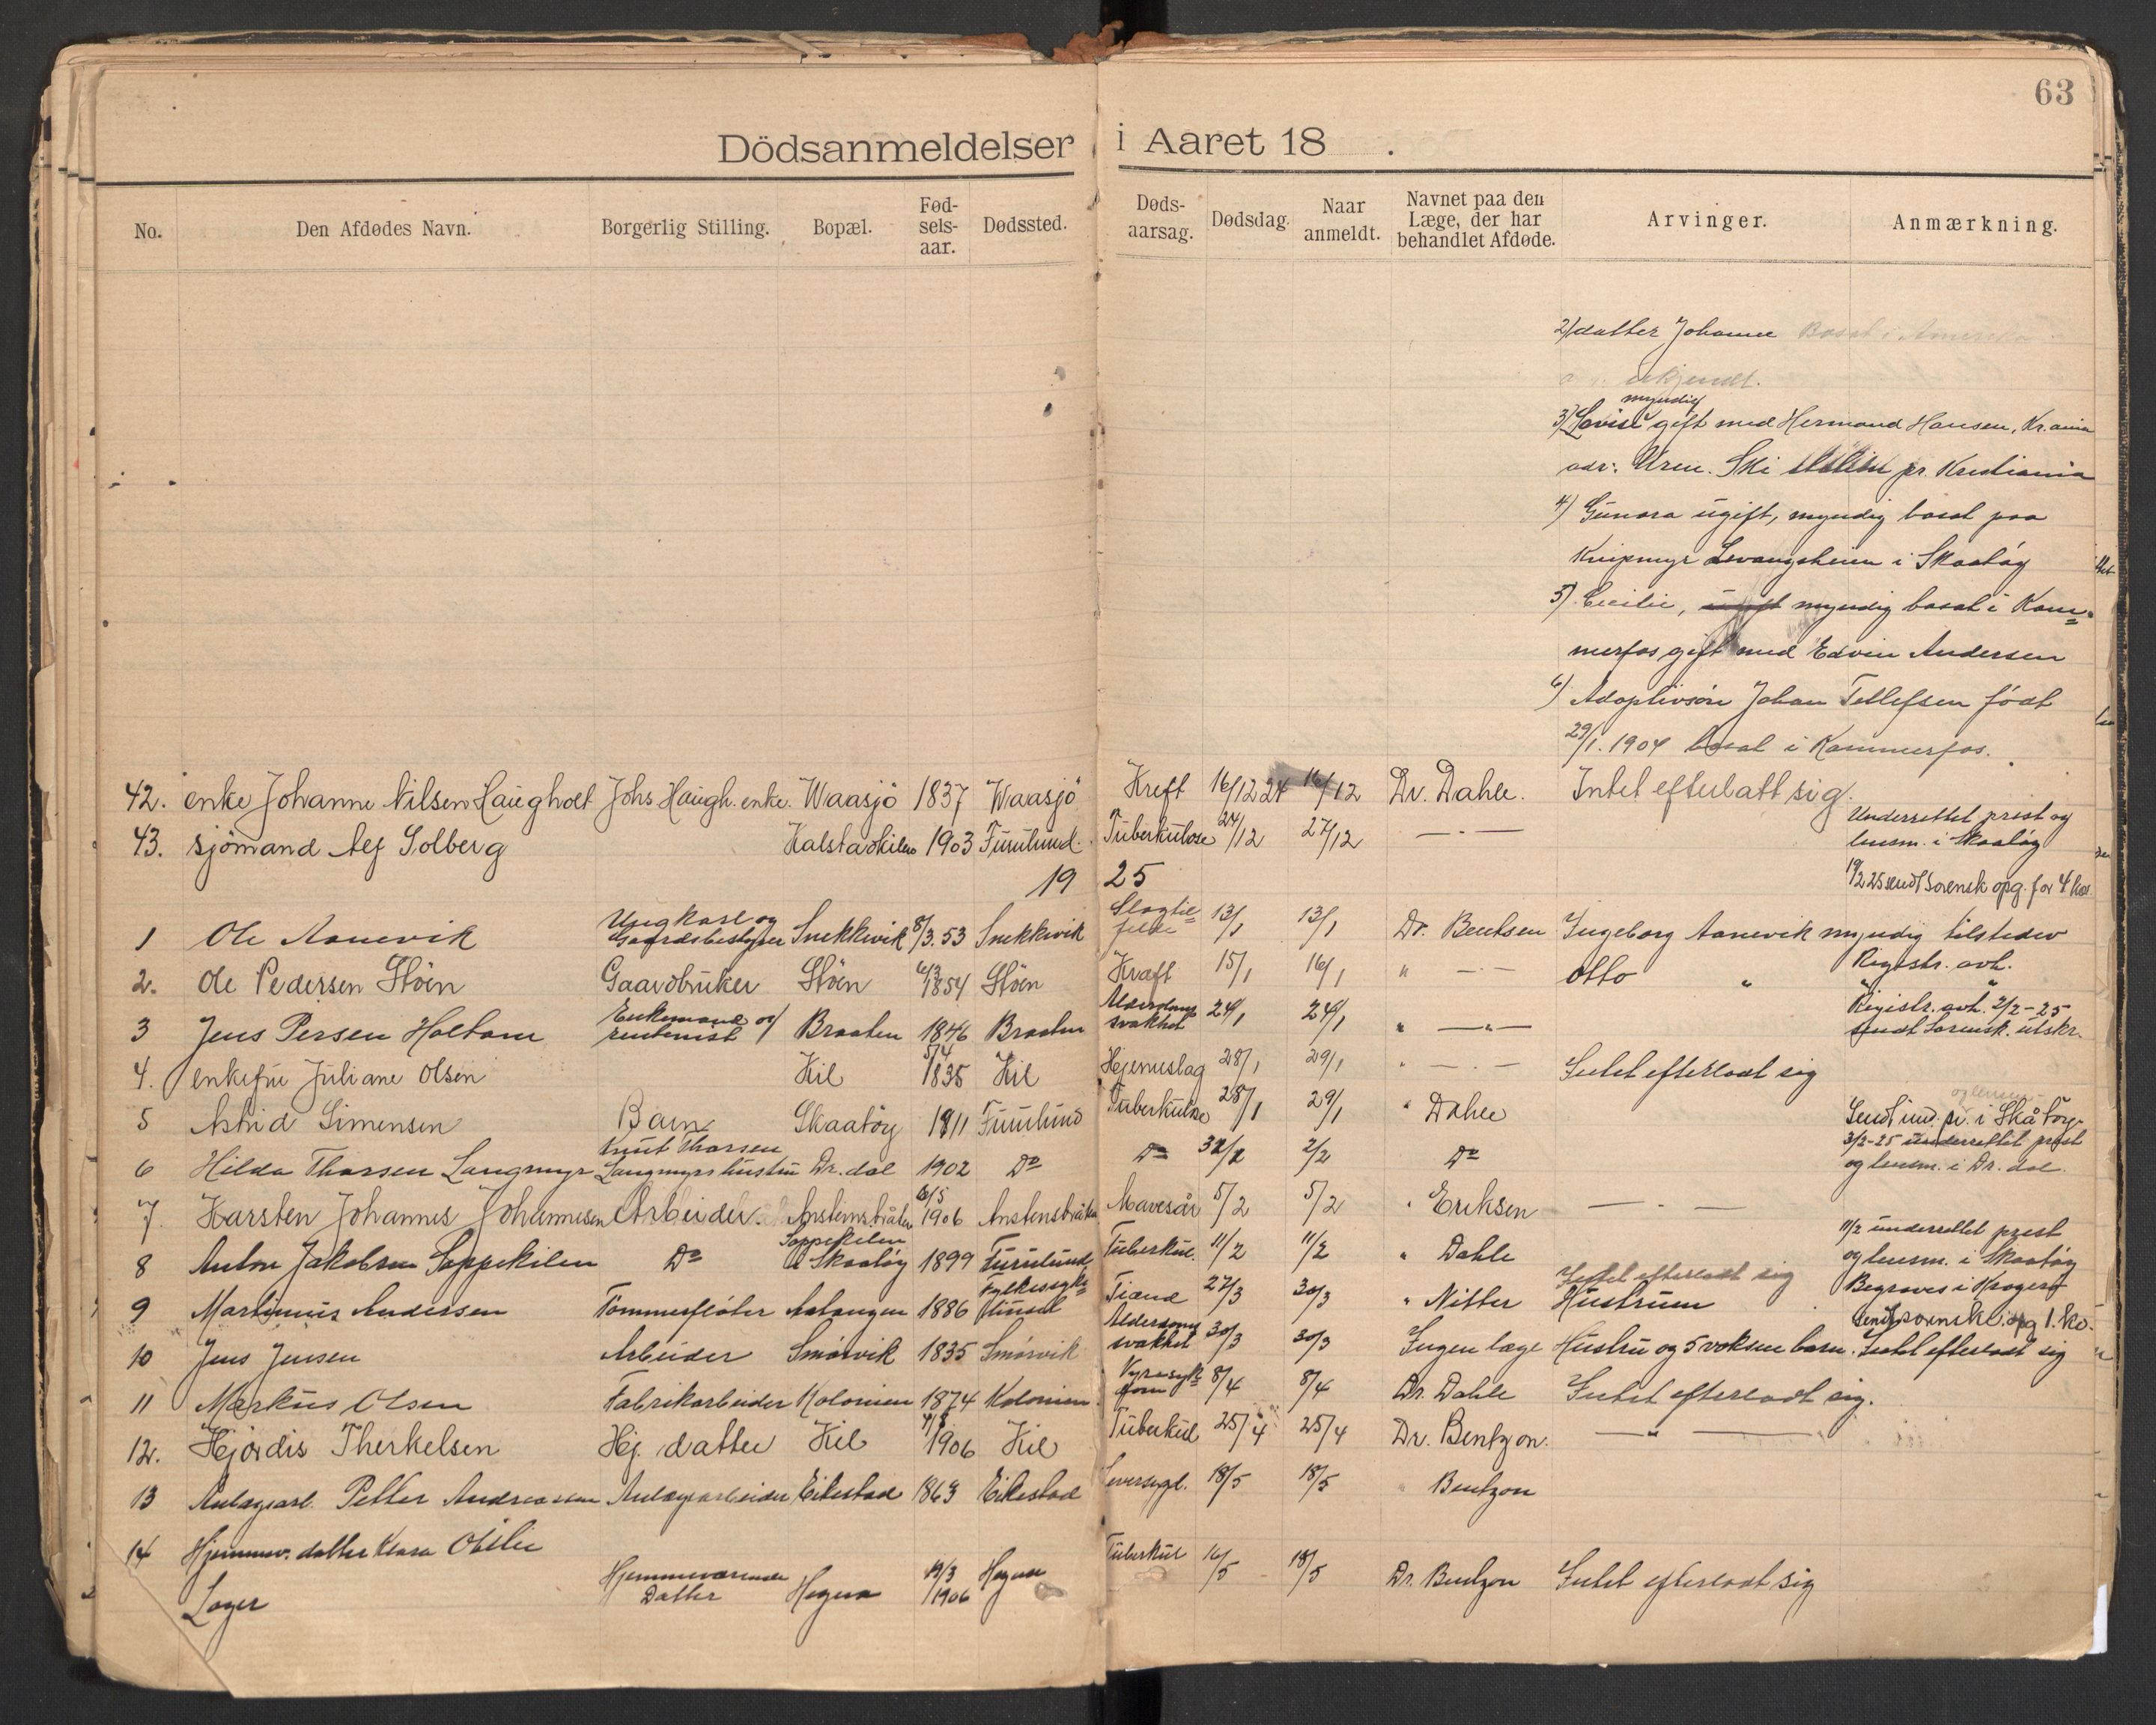 63
Dödsanmeldelser i Aaret 18 .
No. Den Afdødes Navn. Borgerlig Stilling. Bopæl. Fødselsaar. Dødssted. Dødsaarsag. Dødsdag. Naar anmeldt. Navnet paa den Læge, der har behandlet Afdøde. Arvinger. Anmærkning.
2) datter Johanne Bosat i Amerika
ukjendt.
myndig
3) Lovise gift med Hermand Hansen, Kr.ania
adr: Uren. Ski pr. Kristiania
4) Gunara ugift, myndig bosat paa
Knipmyr Levangsheien i Skaatöy
5) Cecilie, ugift myndig bosat i Kam=
merfos gift med Edvin Andersen
6) Adoptivsön Johan Tellefsen födt
29/1. 1904 bosat i Kammerfos.
42. enke Johanne Nilsen Haugholt Johs Haugh. enke. Waasjö 1837 Waasjö Kreft 16/12 24 16/12 Dr. Dahle. Intet efterlatt sig.
43. sjömand Alf Solberg Kalstadkilen 1903 Furulund. Tuberkulose 24/12 27/12 — " — Underrettet prest og
lensm. i Skaatöy
1925
19/2 25 sendt Sorensk opg. for 4 kv.
1 Ole Aanevik Ungkarl og Gaardsbestyrer Snekkevik 8/3.53 Snekkevik Slagtilfelde 13/1 13/1 Dr. Bentsen Ingeborg Aanevik myndig tilstedev
2. Ole Pedersen Stöen Gaardbruker Stöen 6/3 1854 Stöen Kraft 15/1 16/1 " — " — Otto " Registr. avh.
3 Jens Persen Holtane Enkemand og rentenist Braaten 1846 Braaten Alderdomssvakhet 24/1 24/1 " — " — Registr. avh. 2/2-25
sendt Sorensk. utskr.
4. enkefru Juliane Olsen Kil 5/4 1835 Kil Hjerneslag 28/1 29/1 " — " — Intet efterladt sig
5 Astrid Simensen Barn Skaatöy 1911 Furulund Tuberkulose 28/1 29/1 " Dahle og lensm.
Sendt und. pr. i Skåtöy.
6 Hilda Thorsen Langmyr Knut Thorsen Langmyrs hustru Dr.dal 1902 Do Do 2/2 2/2 Do 3/2-25 Underrettet prest
og lensm. i Dr. dal.
7. Karsten Johannes Johannesen Arbeider. Anstensbråten 6/5 1906 Anstensbråten Mavesår 5/2 5/2 " Eriksen — " —
8 Anton Jakobsen Soppekilen Do Soppekilen i Skaatöy 1899 Furulund Tuberkul. 11/2 11/2 " Dahle Intet efterladt sig 11/2 underrettet prest
og lensm. i Skaatöy
9 Martinius Andersen Tömmerflöter Aatangen 1886 Fylkessykehuset Tiand 27/3 30/3 " Nitter Hustruen Begraves i Kragerö
Sendt sorenskr. opg 1. kv.
10 Jens Jensen Arbeider Smörvik 1835 Smörvik Alderdomssvakhet 30/3 30/3 Ingen læge Hustru og 5 voksne barn. Intet efterladt sig
11 Markus Olsen Fabrikarbeider Kolonien 1874 Kolonien Nyresykdom 8/4 8/4 Dr. Dahle Intet efterladt sig.
12. Hjördis Therkelsen Hj. datter Kil 1906 Kil Tuberkul 25/4 25/4 Dr. Bentzon. — " —
13 Anlægsarb. Petter Andreassen Anlægsarbeider Eikestad 1863 Eikestad Leversygd. 18/5 18/5 Bentzon
14 Hjemmev. datter Klara Otilie
Loger Hjemmeværende Datter Hegna 19/3 1906 Hegna Tuberkul 16/5 18/5 Dr. Bentzon Intet efterladt sig